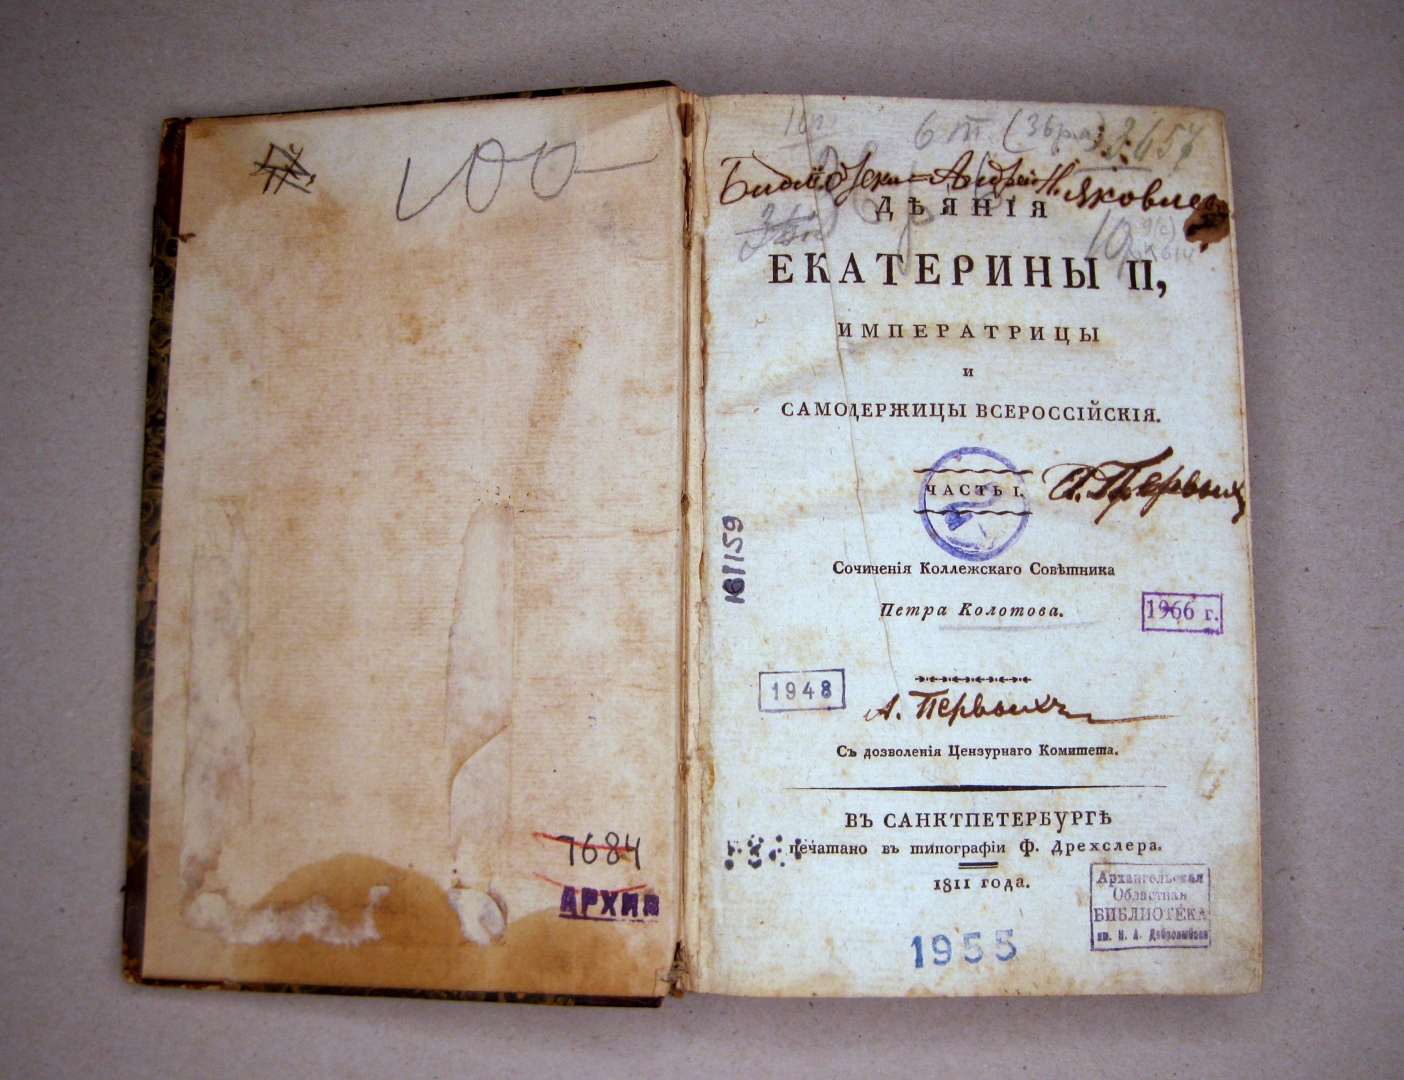 100
7684
АРХИВ
6 т.
Библіотеки Андрея Н. Яковлева
ДѢЯНІЯ
ЕКАТЕРИНЫ II,
ИМПЕРАТРИЦЫ
и
САМОДЕРЖИЦЫ ВСЕРОССІЙСКІЯ.
ЧАСТЬ I.
А. Первых
161159
Сочиненія Коллежскаго Совѣтника
Петра Колотова.
1966 г.
1948
А. Первыхъ
Съ дозволенія Цензурнаго Комитета.
ВЪ САНКТПЕТЕРБУРГѢ
печатано въ типографіи Ф. Дрехслера.
1811 года.
Архангельская
Областная
БИБЛИОТЕКА
им. Н. А. Добролюбова
1955